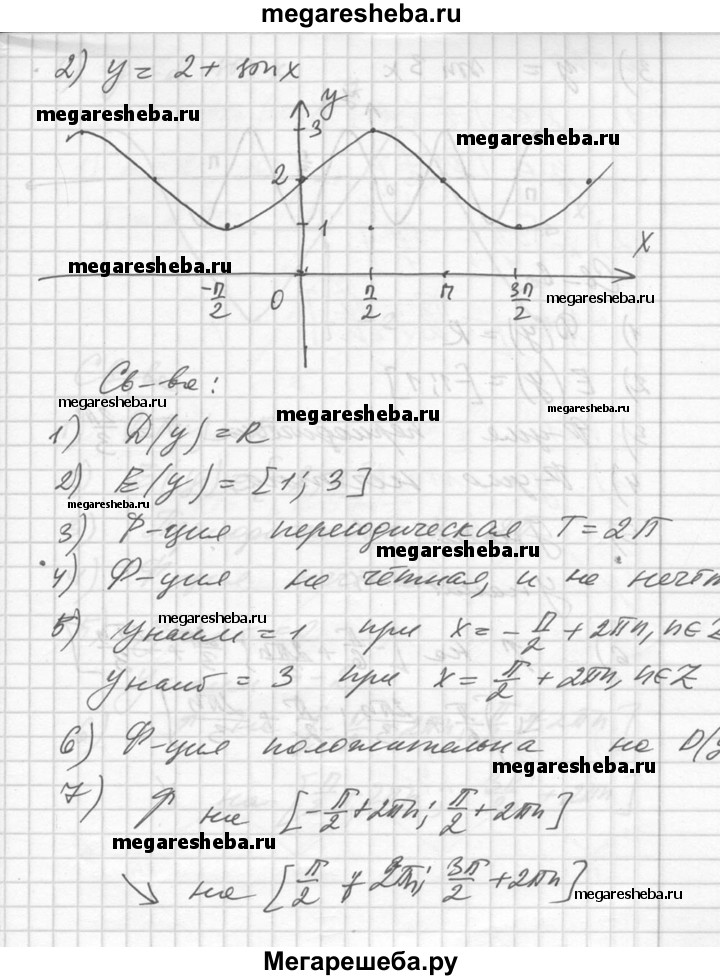 megaresheba.ru
2) y = 2 + sin x
megaresheba.ru
y
3
megaresheba.ru
2
1
X
megaresheba.ru
-π/2 0 π/2 π 3π/2
megaresheba.ru
Св-ва:
megaresheba.ru
megaresheba.ru
megaresheba.ru
1) D(y) = R
2) E(y) = [1; 3]
megaresheba.ru
3) Ф-ция периодическая T = 2π
megaresheba.ru
4) Ф-ция не чётная, и не нечётн
megaresheba.ru
5) yнаим = 1 при x = -π/2 + 2πn, n∈Z
yнаиб = 3 при x = π/2 + 2πn, n∈Z
6) Ф-ция положительна на D(y
megaresheba.ru
7) ↗ на [-π/2 + 2πn; π/2 + 2πn]
megaresheba.ru
↘ на [π/2 + 2πn; 3π/2 + 2πn]
megaresheba.ru
Мегарешеба.ру